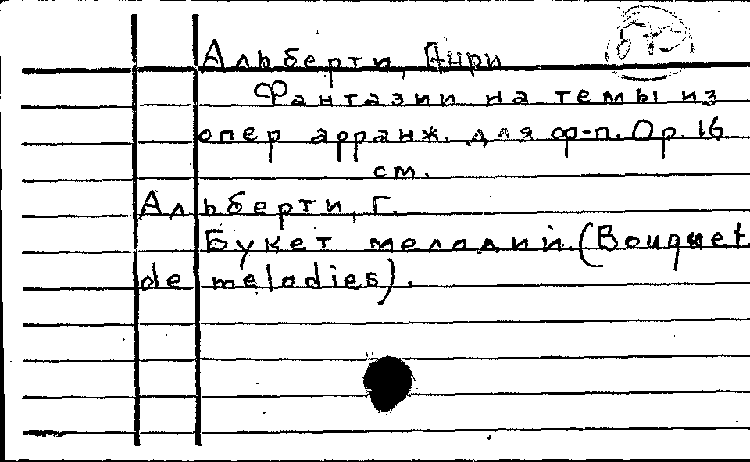 Альберти, Анри
Фантазии на темы из
опер арранж. для ф-п. Op. 16
см.
Альберти, Г.
Букет мелодий. (Bouquet
de melodies).